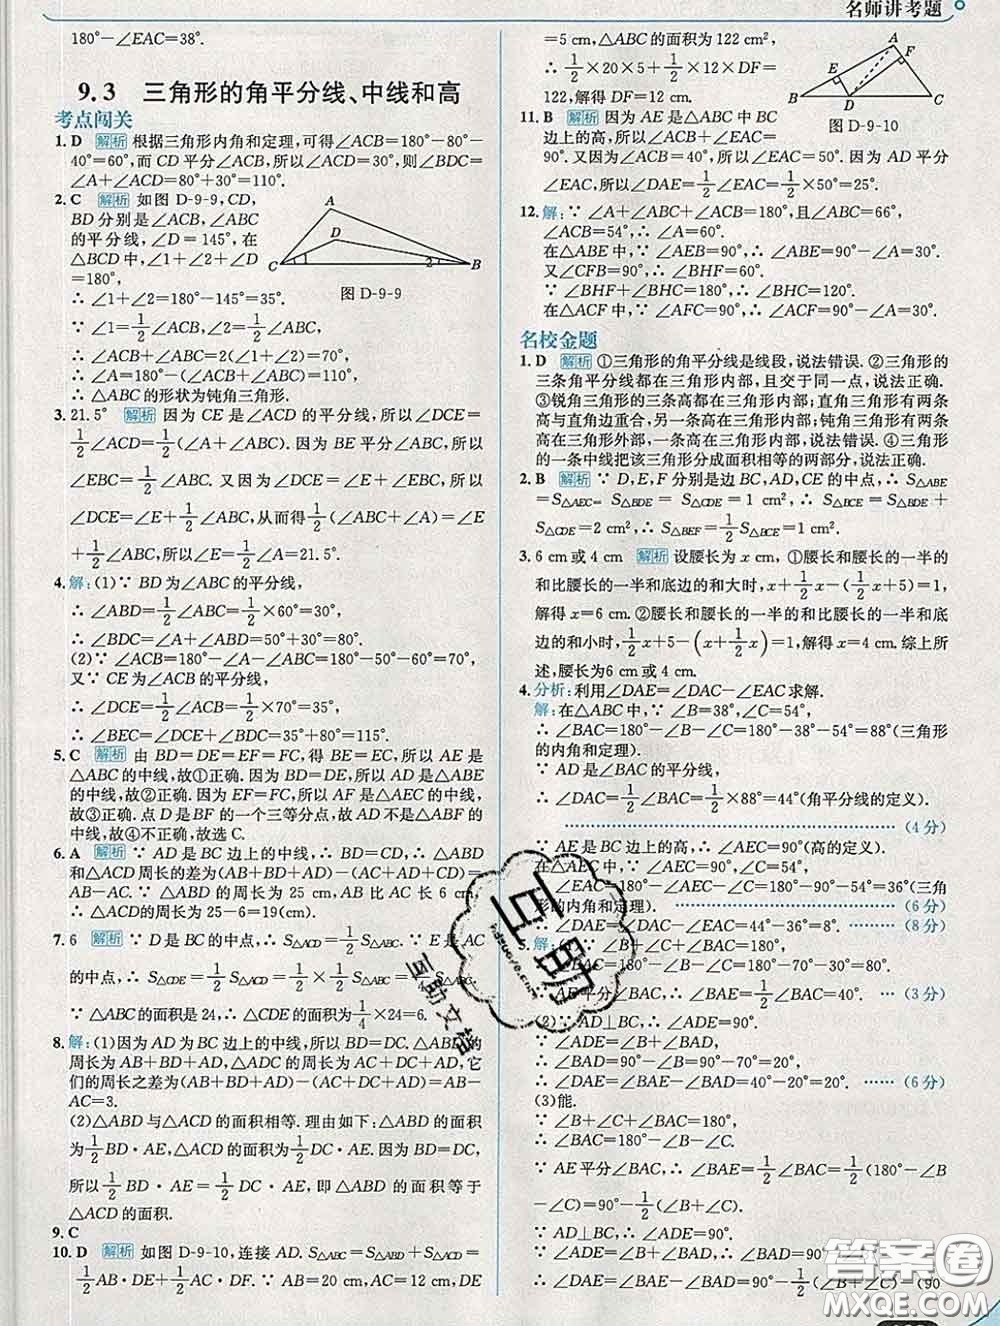 名师讲考题
180°-∠EAC=38°.
9.3 三角形的角平分线、中线和高
考点闯关
1. D 解析 根据三角形内角和定理,可得∠ACB=180°-80°-
40°=60°,而 CD 平分∠ACB,所以∠ACD=30°,则∠BDC=
∠A+∠ACD=80°+30°=110°.
2. C 解析 如图 D-9-9,CD,
BD 分别是∠ACB,∠ABC
的平分线,∠D=145°,在
△BCD中,∠1+∠2+∠D
=180°,
A
D
C
2
B
图 D-9-9
∴ ∠1+∠2=180°-145°=35°.
∵ ∠1=1/2∠ACB,∠2=1/2∠ABC,
∴ ∠ACB+∠ABC=2(∠1+∠2)=70°,
∴ ∠A=180°-(∠ACB+∠ABC)=110°,
∴ △ABC的形状为钝角三角形.
3. 21.5° 解析 因为 CE 是∠ACD 的平分线,所以∠DCE=
1/2∠ACD=1/2(∠A+∠ABC). 因为 BE 平分∠ABC,所以
∠EBC=1/2∠ABC. 又因为∠DCE=∠E+∠EBC,所以
∠DCE=∠E+1/2∠ABC,从而得1/2(∠ABC+∠A)=∠E
+1/2∠ABC,所以∠E=1/2∠A=21.5°.
4. 解:(1)∵ BD为∠ABC的平分线,
∴ ∠ABD=1/2∠ABC=1/2×60°=30°,
∴ ∠BDC=∠A+∠ABD=50°+30°=80°.
(2)∵ ∠ACB=180°-∠A-∠ABC=180°-50°-60°=70°,
又∵ CE为∠ACB的平分线,
∴ ∠DCE=1/2∠ACB=1/2×70°=35°,
∴ ∠BEC=∠DCE+∠BDC=35°+80°=115°.
5. C 解析 由 BD=DE=EF=FC,得 BE=EC,所以 AE 是
△ABC的中线,故①正确.因为 BD=DE,所以 BD 是△ABE
的中线,故②正确.因为 EF=FC,所以 AF 是△AEC 的中线,
故③正确.点 D 是 BF 的一个三等分点,故 AD 不是△ABF的
中线,故④不正确,故选 C.
6. A 解析 ∵ AD 是 BC 边上的中线,∴ BD=CD,∴ △ABD
和△ADC周长的差为(AB+BD+AD)-(AC+AD+CD)=
AB-AC. ∵ △ABD 的周长为 25 cm,AB 比 AC 长 6 cm,
∴ △ACD的周长为 25-6=19(cm).
7. 6 解析 ∵ D是 BC 的中点,∴ S△ACD=1/2S△ABC. ∵ E 是 AC
的中点,∴ S△CDE=1/2S△ACD=1/2×1/2S△ABC=1/4S△ABC.
∵ △ABC的面积是 24,∴ △CDE的面积是1/4×24=6.
8. 解:(1)因为 AD为 BC 边上的中线,所以 BD=DC. △ABD的
周长为 AB+BD+AD,△ADC的周长为 AC+DC+AD,它
们的周长之差为(AB+BD+AD)-(AC+DC+AD)=AB-
AC=3.
(2)△ABD与△ACD的面积相等. 理由如下:△ABD的面积
为1/2BD·AE,△ACD 的面积为1/2DC·AE. 因为 BD=DC,
所以1/2BD·AE=1/2DC·AE,即△ABD 的面积等于
△ACD的面积.
9. C
10. D 解析 如图 D-9-10,连接 AD. S△ABC=S△ABD+S△ACD=
1/2AB·DE+1/2AC·DF. ∵ AB=20 cm,AC=12 cm,DE
=5 cm,△ABC的面积为 122 cm²,
∴ 1/2×20×5+1/2×12×DF=
122,解得 DF=12 cm.
A
F
E
B
D
C
图 D-9-10
11. B 解析 因为 AE 是△ABC 中 BC
边上的高,所以∠ACB+∠EAC=
90°. 又因为∠ACB=40°,所以∠EAC=50°. 因为 AD 平分
∠EAC,所以∠DAE=1/2∠EAC=1/2×50°=25°.
12. 解:∵ ∠A+∠ABC+∠ACB=180°,且∠ABC=66°,
∠ACB=54°,∴ ∠A=60°.
在△ABE中,∵ ∠AEB=90°,∴ ∠ABE=90°-∠A=30°.
又∠CFB=90°,∴ ∠BHF=60°.
∵ ∠BHF+∠BHC=180°,∴ ∠BHC=120°.
在△ACF中,∵ ∠AFC=90°,∴ ∠ACF=90°-∠A=30°.
名校金题
1. D 解析 ①三角形的角平分线是线段,说法错误. ②三角形的
三条角平分线都在三角形内部,且交于同一点,说法正确.
③锐角三角形的三条高都在三角形内部;直角三角形有两条
高与直角边重合,另一条高在三角形内部;钝角三角形有两条
高在三角形外部,一条高在三角形内部,说法错误. ④三角形
的一条中线把该三角形分成面积相等的两部分,说法正确.
2. B 解析 ∵ D,E,F 分别是边 BC,AD,CE 的中点,∴ S△ABE
=S△AEC=S△BDE=S△CDE=1 cm²,∴ S△BCE=S△BDE+
S△CDE=2 cm²,∴ S△BEF=1/2S△BCE=1 cm².
3. 6 cm 或 4 cm 解析 设腰长为 x cm,①腰长和腰长的一半的
和比腰长的一半和底边的和大时,x+1/2x-(1/2x+5)=1,
解得 x=6 cm. ②腰长和腰长的一半的和比腰长的一半和底
边的和小时,1/2x+5-(x+1/2x)=1,解得 x=4 cm. 综上所
述,腰长为6 cm 或 4 cm.
4. 分析:利用∠DAE=∠DAC-∠EAC求解.
解:在△ABC中,∵ ∠B=38°,∠C=54°,
∴ ∠BAC=180°-∠B-∠C=180°-38°-54°=88°(三角形
的内角和定理).
∵ AD 是∠BAC的平分线,
∴ ∠DAC=1/2∠BAC=1/2×88°=44°(角平分线的定义).
(4 分)
∵ AE是 BC 边上的高,∴ ∠AEC=90°(高的定义).
∵ ∠AEC=90°,∠C=54°,
∴ ∠EAC=180°-∠AEC-∠C=180°-90°-54°=36°(三角
形的内角和定理). (6 分)
∴ ∠DAE=∠DAC-∠EAC=44°-36°=8°. (8 分)
5. 解:(1)∵ ∠B+∠C+∠BAC=180°,
∴ ∠BAC=180°-∠B-∠C=180°-70°-30°=80°.
∵ AE平分∠BAC,∴ ∠BAE=1/2∠BAC=40°. …(3 分)
(2)∵ AD⊥BC,∴ ∠ADE=90°.
∵ ∠ADE=∠B+∠BAD,
∴ ∠BAD=90°-∠B=90°-70°=20°,
∴ ∠DAE=∠BAE-∠BAD=40°-20°=20°. ……(6 分)
(3)能.
∵ ∠B+∠C+∠BAC=180°,
∴ ∠BAC=180°-∠B-∠C.
∵ AE平分∠BAC,∴ ∠BAE=1/2∠BAC=1/2(180°-∠B
-∠C)=90°-1/2(∠B+∠C).
∵ AD⊥BC,∴ ∠ADE=90°.
∵ ∠ADE=∠B+∠BAD,∴ ∠BAD=90°-∠B,
∴ ∠DAE=∠BAE-∠BAD=90°-1/2(∠B+∠C)-(90°
互助
互助文档
答案圈
MXQE.COM